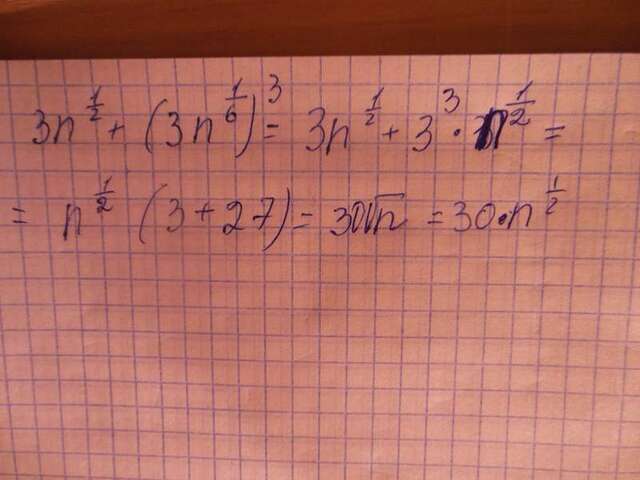 3n^{\frac{1}{2}} + (3n^{\frac{1}{6}})^3 = 3n^{\frac{1}{2}} + 3^3 · n^{\frac{1}{2}} =
= n^{\frac{1}{2}} (3 + 27) = 30√n = 30·n^{\frac{1}{2}}